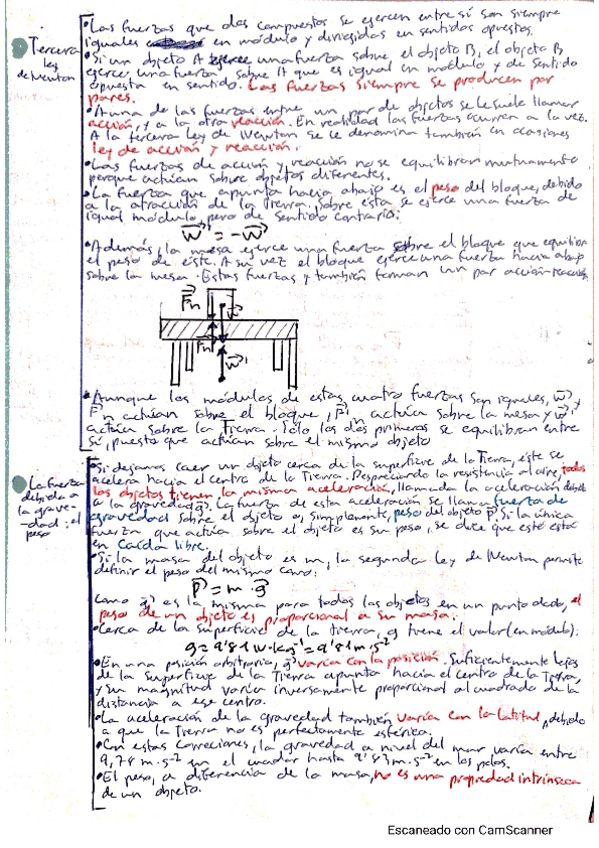 Tercera
ley
de Newton
• Las fuerzas que dos compuestos se ejercen entre sí son siempre
iguales en módulo y dirigidas en sentidos opuestos.
• Si un objeto A ejerce una fuerza sobre el objeto B, el objeto B
ejerce una fuerza sobre A que es igual en módulo y de sentido
opuesta en sentido. Las fuerzas siempre se producen por
pares.
• A una de las fuerzas entre un par de objetos se le suele llamar
acción, y a la otra reacción. En realidad las fuerzas ocurren a la vez.
A la tercera ley de Newton se le denomina también en ocasiones
ley de acción y reacción.
• Las fuerzas de acción y reacción no se equilibran mutuamente
porque actúan sobre objetos diferentes.
• La fuerza que apunta hacia abajo es el peso del bloque, debido
a la atracción de la Tierra. Sobre esta se ejerce una fuerza de
igual módulo, pero de sentido contrario:
W' = -W
• Además, la mesa ejerce una fuerza sobre el bloque que equilibra
el peso de éste. A su vez el bloque ejerce una fuerza hacia abajo
sobre la mesa. Estas fuerzas también forman un par acción-reacción.
Fn
W'
• Aunque los módulos de estas cuatro fuerzas son iguales, W y
Fn actúan sobre el bloque, F'n actúa sobre la mesa y W'
actúa sobre la Tierra. Sólo las dos primeras se equilibran entre
sí, puesto que actúan sobre el mismo objeto
La fuerza
debida a
la grave-
-dad: el
peso
• Si dejamos caer un objeto cerca de la superficie de la Tierra, éste se
acelera hacia el centro de la Tierra. Despreciando la resistencia al aire, todos
los objetos tienen la misma aceleración, llamada la aceleración debida
a la gravedad (g). La fuerza de esta aceleración se llama fuerza de
gravedad sobre el objeto o, simplemente, peso del objeto P. Si la única
fuerza que actúa sobre el objeto es su peso, se dice que éste está
en caída libre.
• Si la masa del objeto es m, la segunda ley de Newton permite
definir el peso del mismo como:
P = m · g
Como g es la misma para todos los objetos en un punto dado, el
peso de un objeto es proporcional a su masa.
• Cerca de la superficie de la tierra, g tiene el valor (en módulo):
g = 9'81 N·kg⁻¹ = 9'81 m·s⁻²
• En una posición arbitraria, g varía con la posición. Suficientemente lejos
de la superficie de la Tierra apunta hacia el centro de la Tierra,
y su magnitud varía inversamente proporcional al cuadrado de la
distancia a ese centro.
• La aceleración de la gravedad también varía con la latitud, debido
a que la Tierra no es perfectamente esférica.
• Con estas correciones, la gravedad a nivel del mar varía entre
9,78 m·s⁻² en el ecuador hasta 9'83 m·s⁻² en los polos.
• El peso, a diferencia de la masa, no es una propiedad intrínseca
de un objeto.
Escaneado con CamScanner